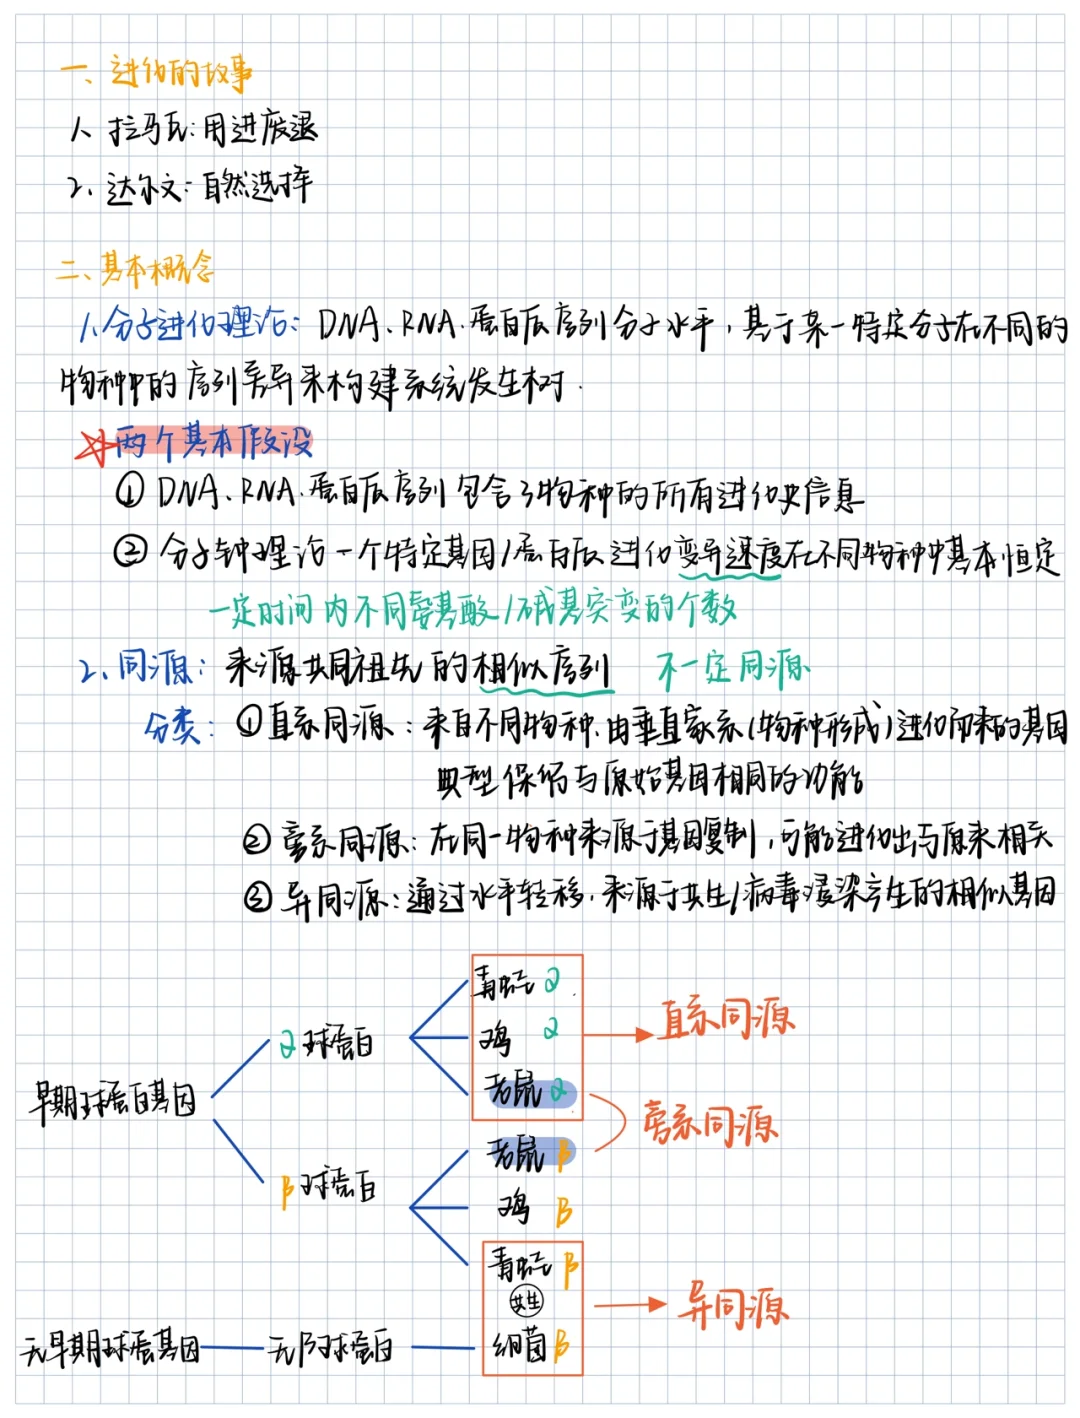 一、进化的故事
1、拉马克:用进废退
2、达尔文:自然选择
二、基本概念
1、分子进化理论:DNA、RNA、蛋白质序列分子水平,基于某一特定分子在不同的
物种中的序列差异来构建系统发生树.
☆两个基本假设
① DNA、RNA、蛋白质序列包含了物种的所有进化史信息
② 分子钟理论一个特定基因/蛋白质进化变异速度在不同物种中基本恒定
一定时间内不同氨基酸/碱基突变的个数
2、同源:来源共同祖先的相似序列 不一定同源
分类:①直系同源:来自不同物种.由垂直家系(物种形成)进化而来的基因
典型保留与原始基因相同的功能
② 旁系同源:在同一物种来源于基因复制,可能进化出与原来相关
③ 异同源:通过水平转移.来源于共生/病毒浸染产生的相似基因
青蛙 α
α球蛋白 鸡 α 直系同源
老鼠 α
早期球蛋白基因 旁系同源
老鼠 β
β球蛋白 鸡 β
青蛙 β
共生 异同源
无早期球蛋基因 无β球蛋白 细菌 β